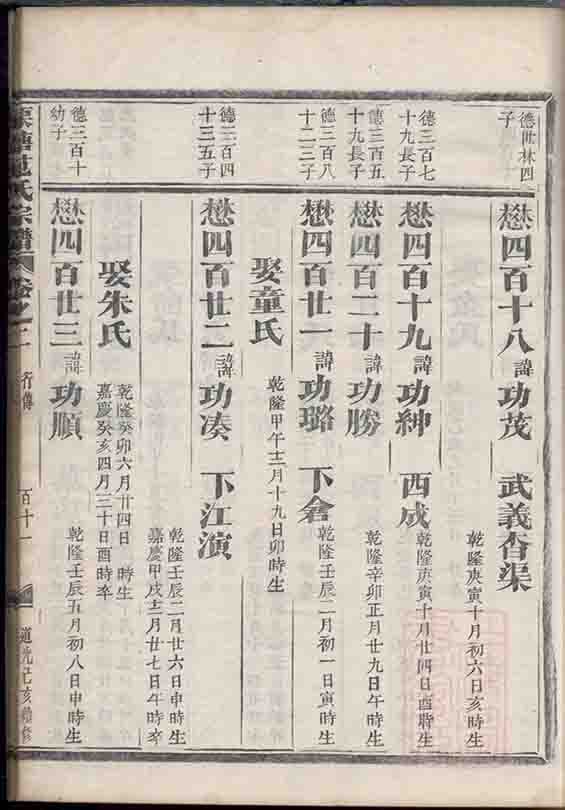 德世林四
子
懋四百十八 諱功茂 武義杳渠
乾隆庚寅十月初六日亥時生
德三百七
十九長子
懋四百十九 諱功紳 西成
乾隆庚寅十月廿四日酉時生
德三百五
十九長子
懋四百二十 諱功勝
乾隆辛卯正月廿九日午時生
德三百八
十二三子
懋四百廿一 諱功璐 下倉
乾隆壬辰二月初一日寅時生
娶童氏
乾隆甲午十二月十九日卯時生
德三百四
十三五子
懋四百廿二 諱功凑 下江演
乾隆壬辰二月廿六日申時生
嘉慶甲戌十二月廿七日午時卒
娶朱氏
乾隆癸卯六月廿四日 時生
嘉慶癸亥四月三十日酉時卒
德三百十
幼子
懋四百廿三 諱功順
乾隆壬辰五月初八日申時生
氏宗譜
卷之二 行傳
百十一
道光己亥續修